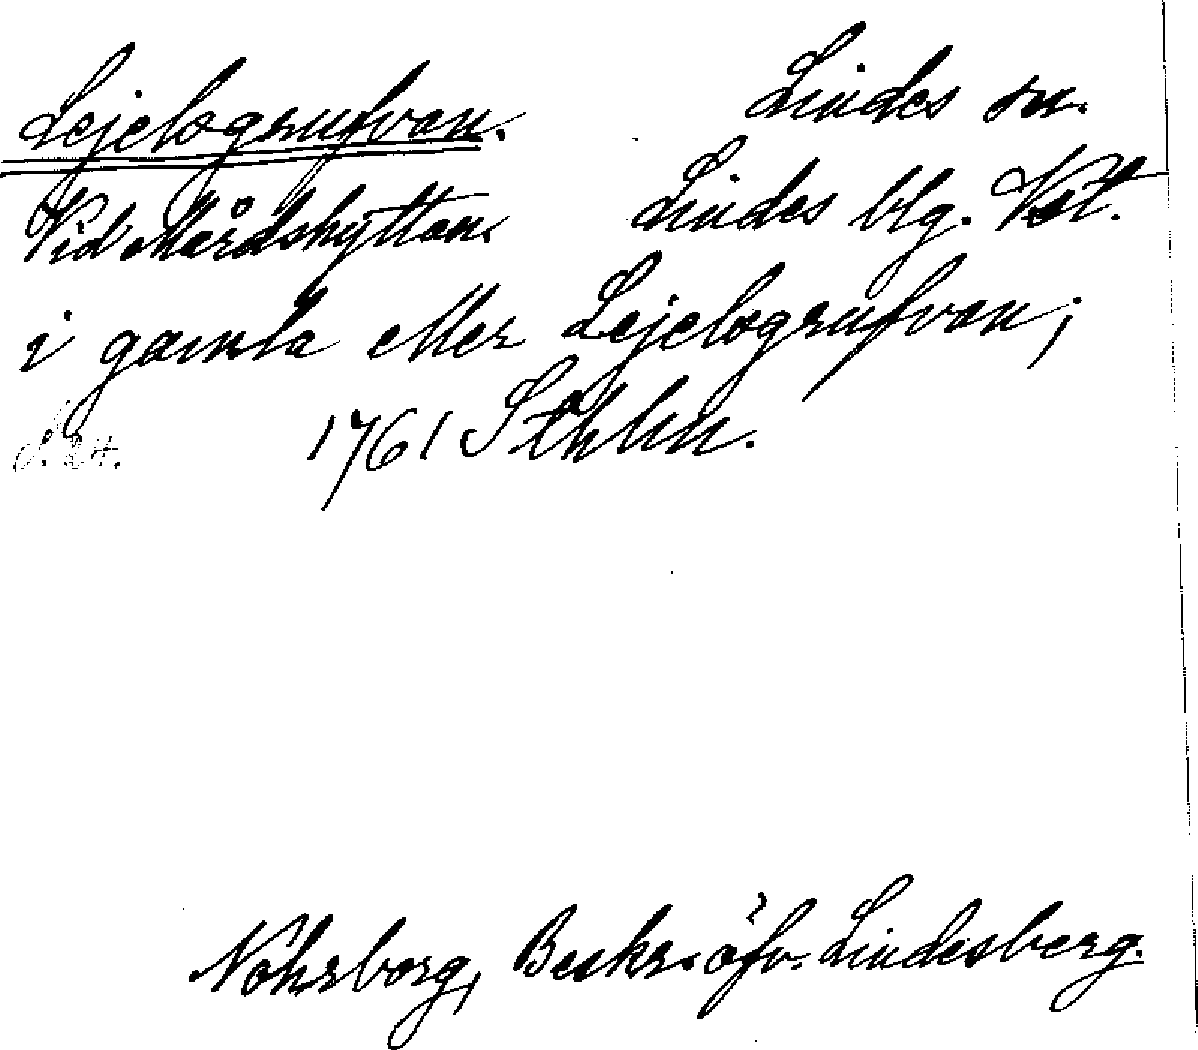 Lejelsgrufvan. Lindes sn.
Vid Mårdshyttan. Lindes blg. Vstl.
i gamla eller Lejelsgrufvan;
S. 24. 1761 Sthlm.
Nohrborg, Beskr. öfv. Lindesberg.